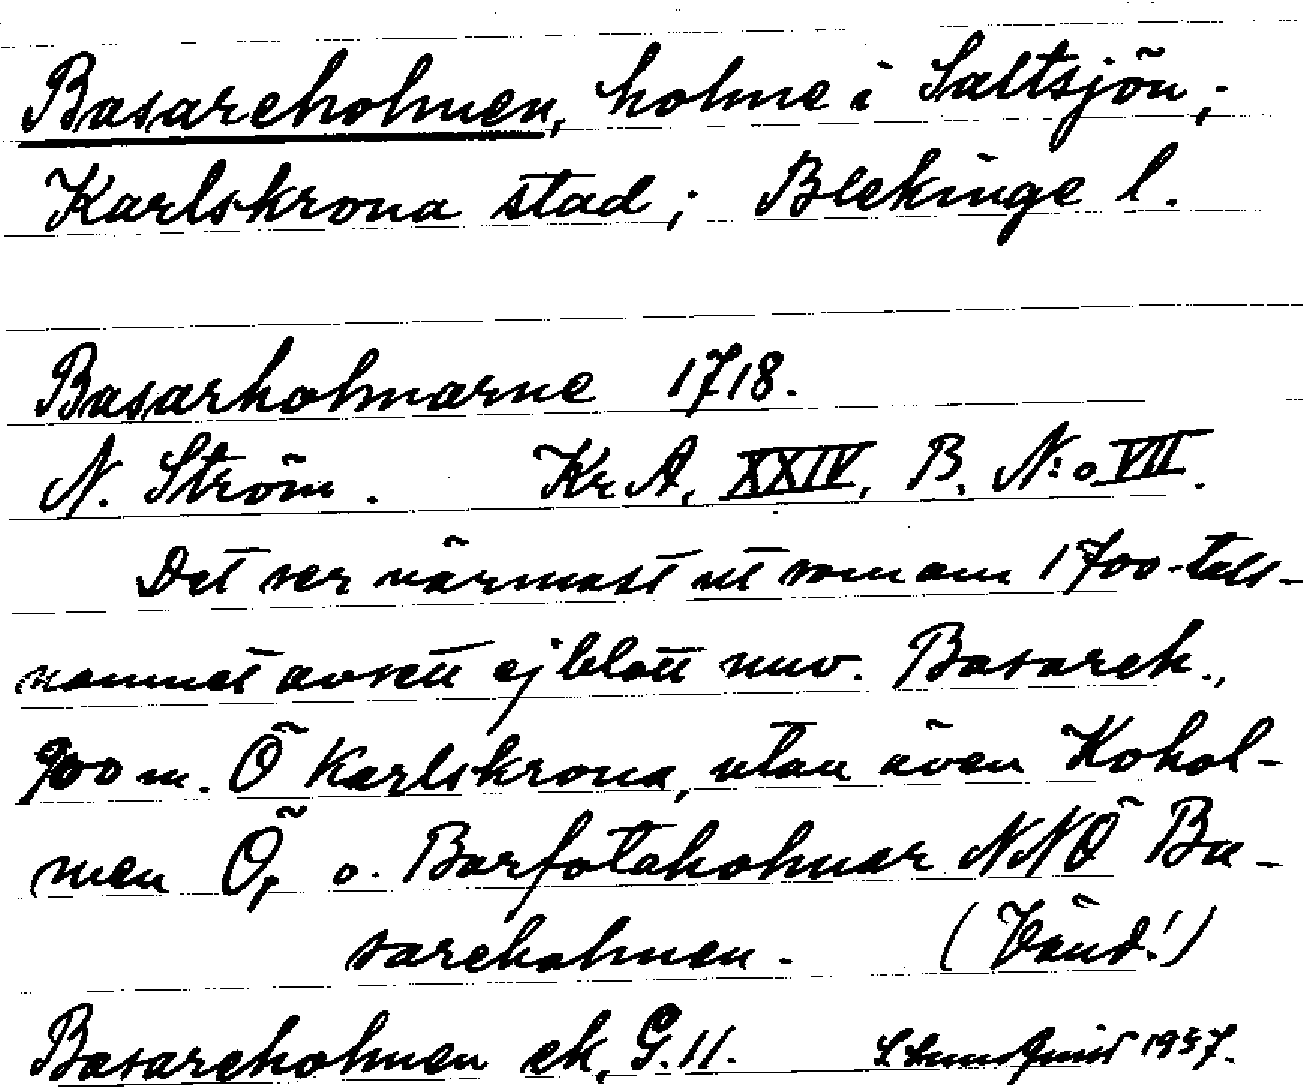 Basareholmen, holme i Saltsjön;
Karlskrona stad; Blekinge l.
Basarholmarne 1718.
N. Ström. Kr A, XXIV, B. N:o VII.
Det ser närmast ut som om 1700-tals-
namnet avsett ej blott nuv. Basareh.,
900 m. Ö Karlskrona, utan även Kohol-
men Ö, o. Barfotaholmar NNÖ Ba-
sareholmen. (Vänd!)
Basareholmen ek, G.11. 1937.